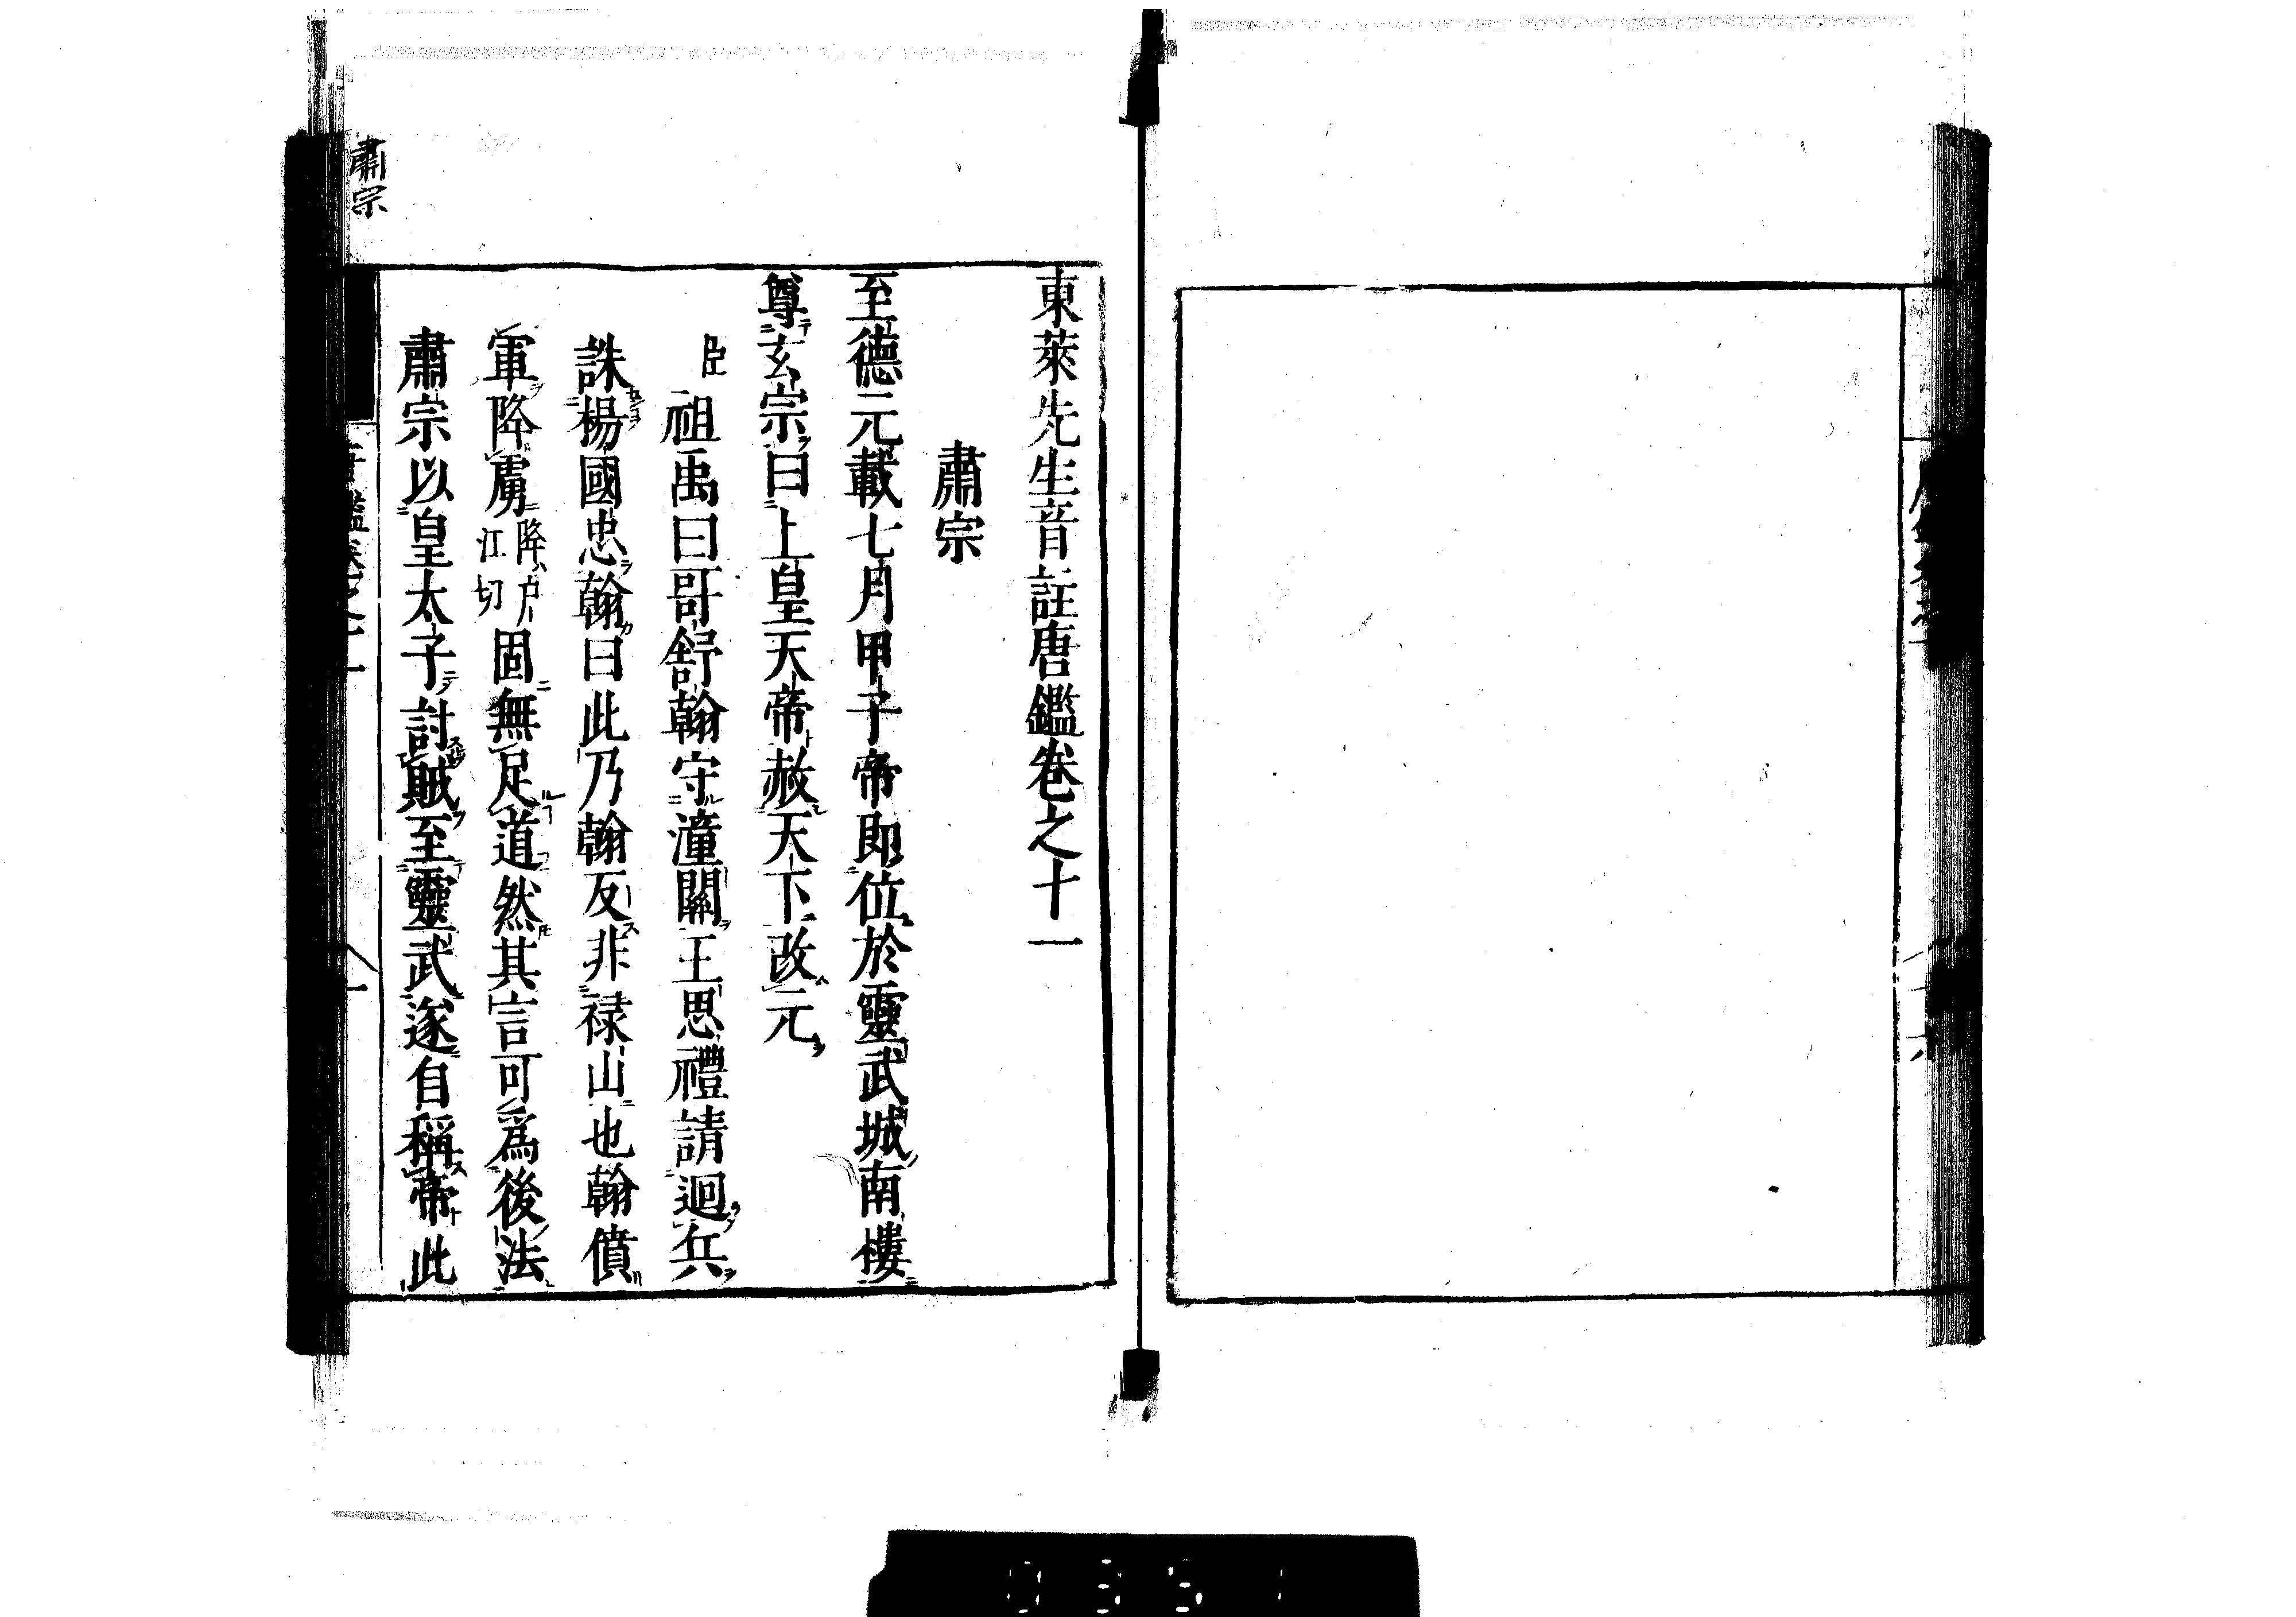 東萊先生音註唐鑑卷之十一
肅宗
至德元載七月甲子帝即位於靈武城南樓
尊玄宗曰上皇天帝赦天下改元
臣祖禹曰哥舒翰守潼關王思禮請迴兵
誅楊國忠翰曰此乃翰反非禄山也翰僨
軍降虜降戶江切固無足道然其言可爲後法
肅宗以皇太子討賊至靈武遂自稱帝此
肅宗